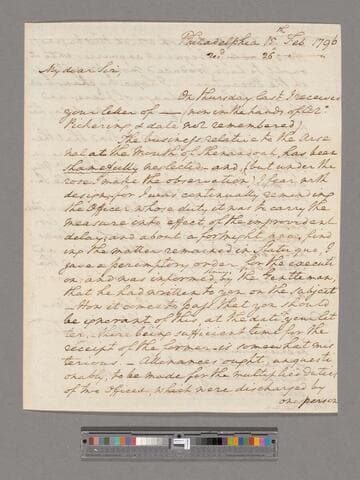 Philadelphia 15th Feb 1796
26
My dear Sir,
On thursday last I received
your letter of — (now in the hands of Mr
Pickering & date not remembered)
The business relative to the Arse
nal at the Mouth of Shenandoah, has been
shamefully neglected—and, (but under the
rose I make the observation) I fear, with
design; for I was continually reminding
the Officer whose duty it was to carry the
measure into effect of the improvident
delay; and about a fortnight ago, find
ing the matter remained in statu quo, I
gave a peremptory order for the executi
on; and was informed by the Gentleman,
that he had written to you on the subject
— How it came to pass that you should
be ignorant of this at the date of your let
ter, there being sufficient time for the
receipt of the former is somewhat mys
terious. — Allowances ought, unquesti
onably, to be made for the multiplied duties
of two Offices, which were discharged by
one person